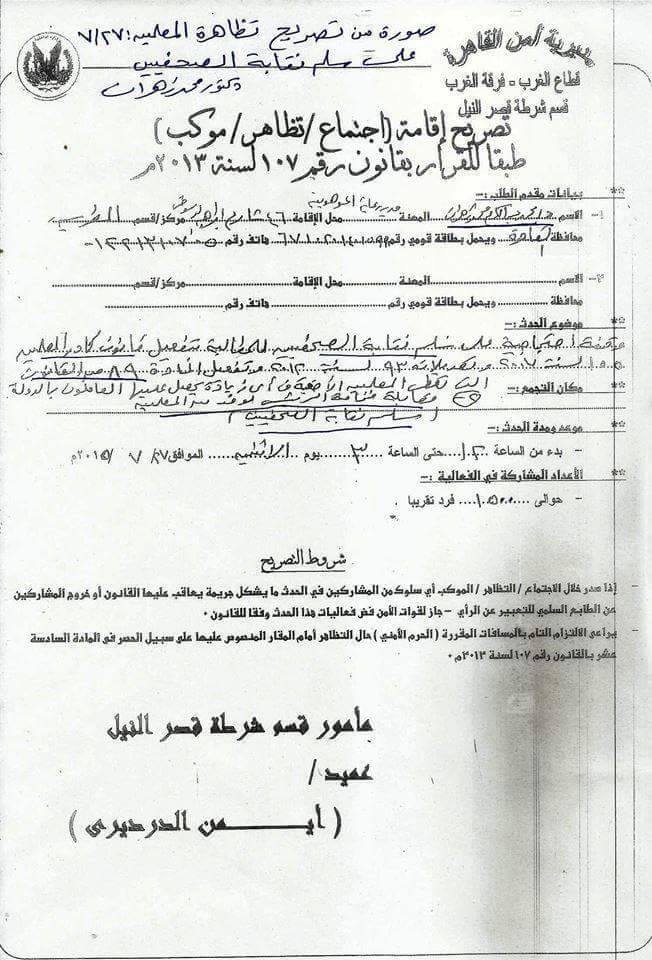 صورة من تصريح تظاهرة المعلمين ٧/٢٧
على سلم نقابة الصحفيين
دكتور محمد زهران
مديرية أمن القاهرة
قطاع الغرب - فرقة الغرب
قسم شرطة قصر النيل
تصريح إقامة (اجتماع / تظاهر / موكب)
طبقا للقرار بقانون رقم ١٠٧ لسنة ٢٠١٣م
** بيانات مقدم الطلب :-
١- الاسم محمد زهران المهنة مدير محل الإقامة ٤٦ شارع ابراهيم مركز/قسم
محافظة القاهرة ويحمل بطاقة قومي رقم هاتف رقم
٢- الاسم المهنة محل الإقامة مركز/قسم
محافظة ويحمل بطاقة قومي رقم هاتف رقم
** موضوع الحدث :-
وقفة احتجاجية على سلم نقابة الصحفيين للمطالبة بتفعيل قانون كادر المعلمين
لسنة ٢٠٠٧ وتعديلاته ٩٣ لسنة ٢٠١٢ وتفعيل المادة ٨٩ من القانون
التى تعطى المعلمين الأحقية فى أى زيادة يحصل عليها العاملون بالدولة
** مكان التجمع :-
(سلم نقابة الصحفيين)
** موعد ومدة الحدث :-
- بدء من الساعة ١٢ حتى الساعة ٣ يوم الاثنين الموافق ٢٧ / ٧ / ٢٠١٥م
** الأعداد المشاركة في الفعالية :-
- حوالى ١٥٠٠ فرد تقريبا
شروط التصريح
- إذا صدر خلال الاجتماع / التظاهر / الموكب أي سلوك من المشاركين في الحدث ما يشكل جريمة يعاقب عليها القانون أو خروج المشاركين
عن الطابع السلمي للتعبير عن الرأي - جاز لقوات الأمن فض فعاليات هذا الحدث وفقا للقانون .
- يراعى الالتزام التام بالمسافات المقررة (الحرم الأمني) حال التظاهر أمام المقار المنصوص عليها على سبيل الحصر في المادة السادسة
عشر بالقانون رقم ١٠٧ لسنة ٢٠١٣م .
مأمور قسم شرطة قصر النيل
عميد /
( أيمن الدرديرى )